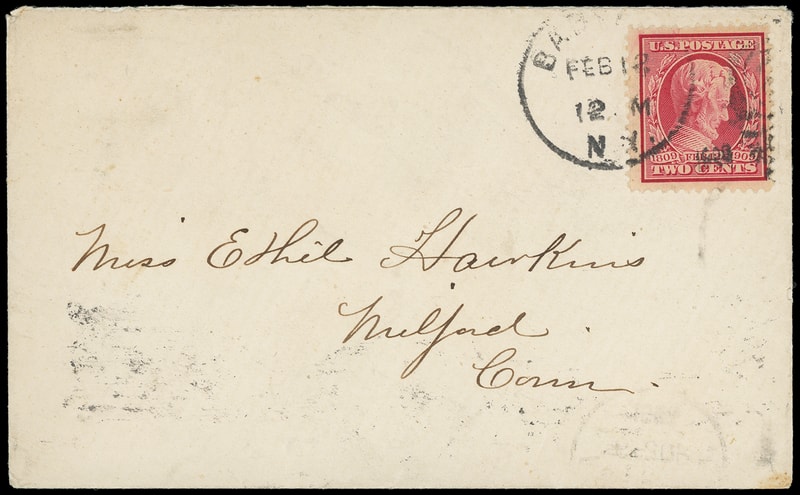 FEB 12
12 M
N.Y.
U.S. POSTAGE
1809 FEB. 12 1909
TWO CENTS
Miss Ethel Hawkins
Milford
Conn.